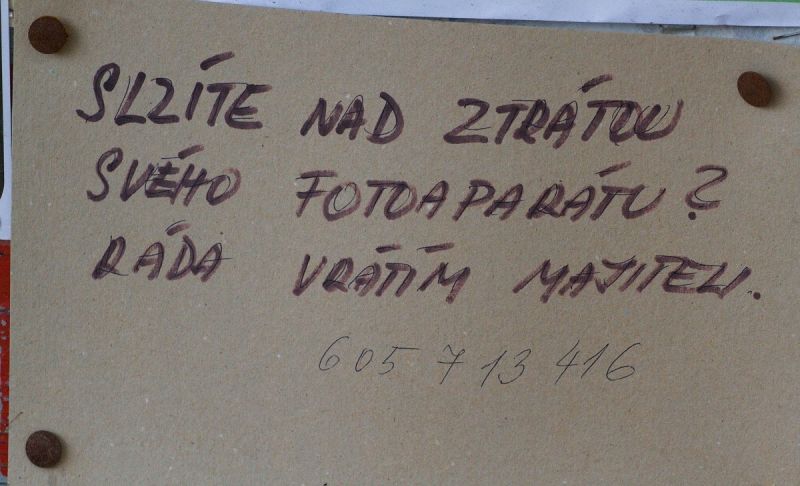 SLZÍTE NAD ZTRÁTOU
SVÉHO FOTOAPARÁTU?
RÁDA VRÁTÍM MAJITELI.
605 713 416